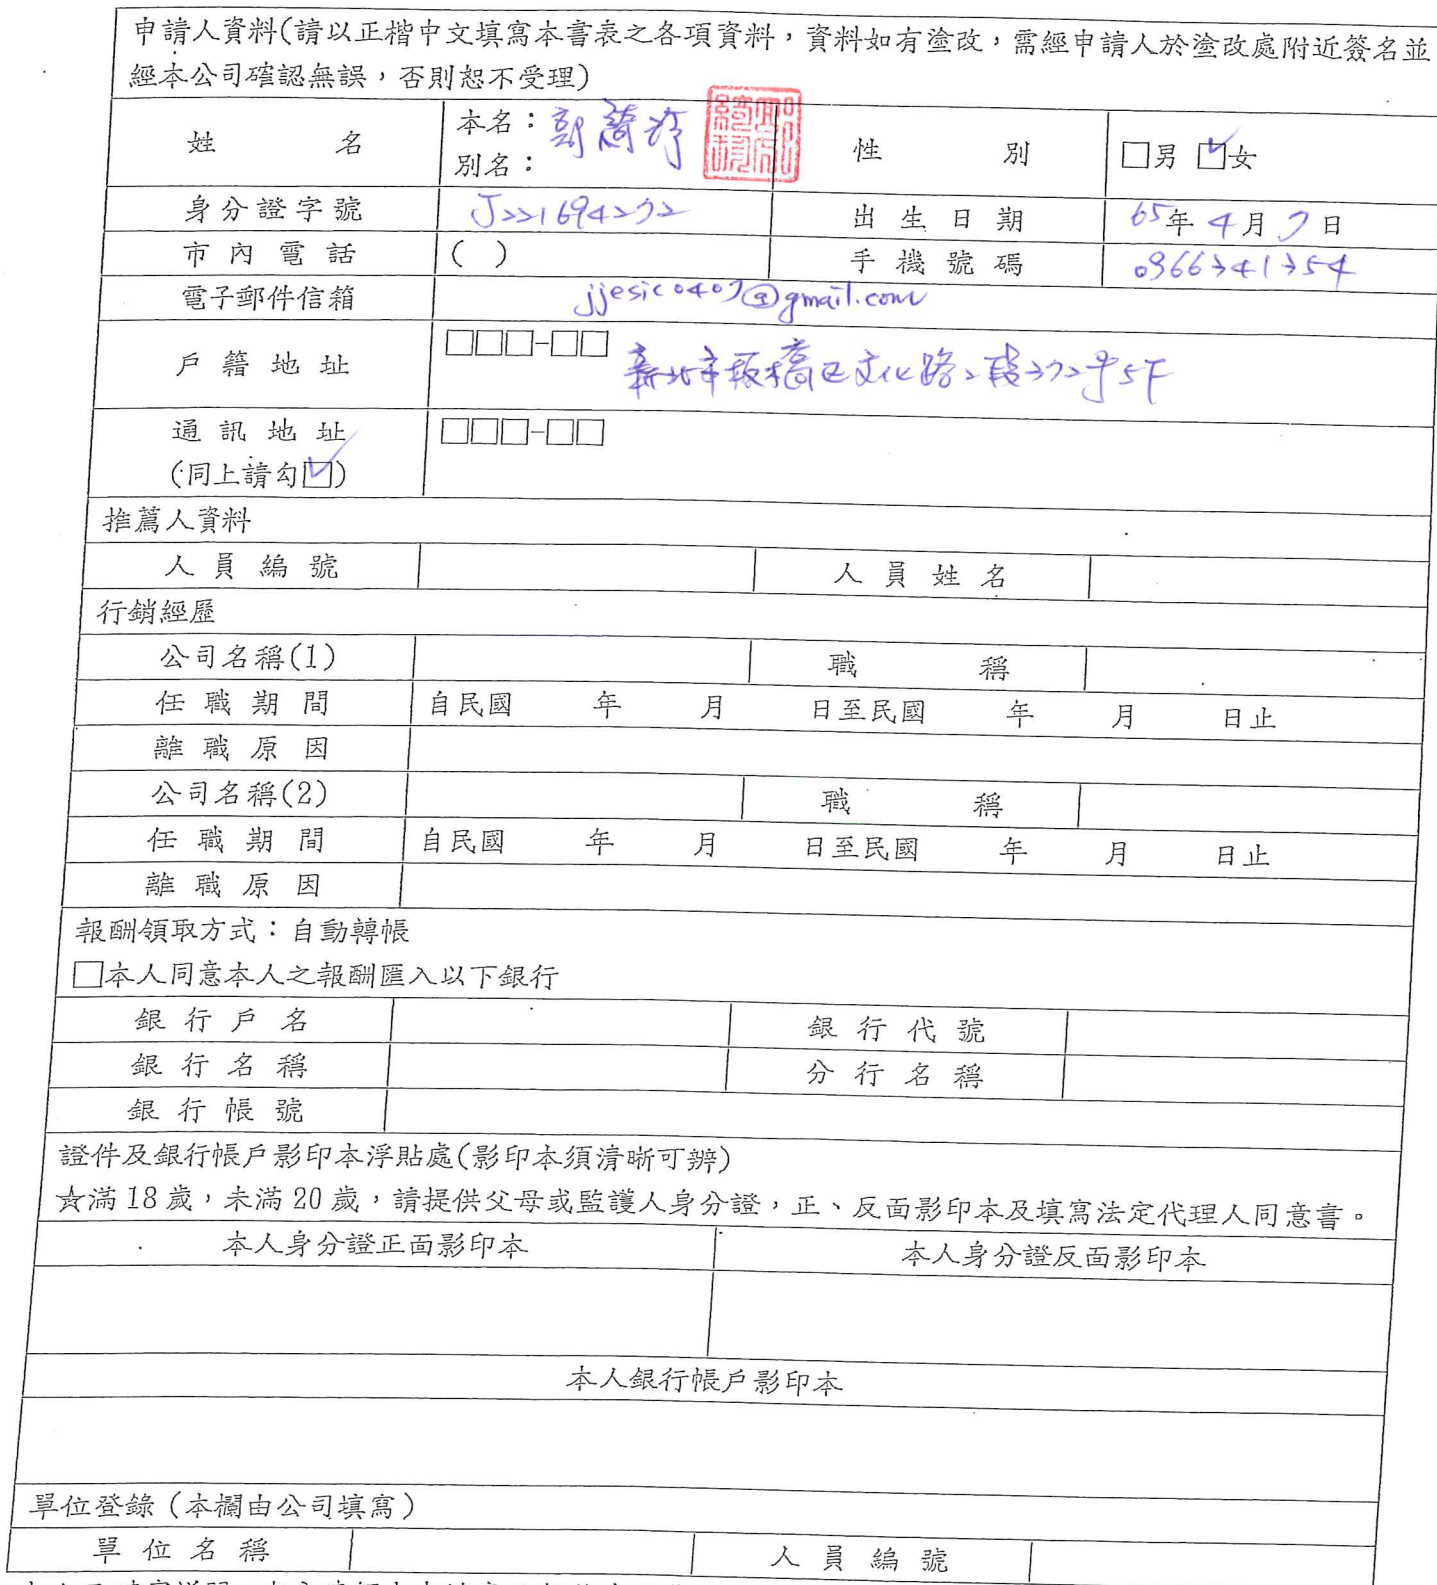 申請人資料(請以正楷中文填寫本書表之各項資料，資料如有塗改，需經申請人於塗改處附近簽名並
經本公司確認無誤，否則恕不受理)
姓 名 本名： 性 別 □男 □女
別名：
身分證字號 J221694272 出生日期 65年4月7日
市內電話 ( ) 手機號碼 0966341354
電子郵件信箱 jjesic0407@gmail.com
戶籍地址 □□□-□□ 新北市板橋區文化路2段372號5F
通訊地址 □□□-□□
(同上請勾□)
推薦人資料
人員編號 人員姓名
行銷經歷
公司名稱(1) 職 稱
任職期間 自民國 年 月 日至民國 年 月 日止
離職原因
公司名稱(2) 職 稱
任職期間 自民國 年 月 日至民國 年 月 日止
離職原因
報酬領取方式：自動轉帳
□本人同意本人之報酬匯入以下銀行
銀行戶名 銀行代號
銀行名稱 分行名稱
銀行帳號
證件及銀行帳戶影印本浮貼處(影印本須清晰可辨)
☆滿18歲，未滿20歲，請提供父母或監護人身分證，正、反面影印本及填寫法定代理人同意書。
本人身分證正面影印本 本人身分證反面影印本
本人銀行帳戶影印本
單位登錄（本欄由公司填寫）
單位名稱 人員編號